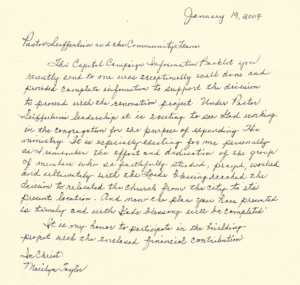 January 19, 2009
Pastor Seifferlein and the Community Team
The Capital Campaign Information Booklet you
recently sent to me was exceptionally well done and
provided complete information to support the decision
to proceed with the renovation project Under Pastor
Seifferleins leadership it is exciting to see God working
in the congregation for the purpose of expanding The
ministry. It is especially exciting for me personally
as I remember the effort and dedication of the group
of members who so faithfully studied, prayed, worked
and ultimately with the Lords blessing reached the
decision to relocated the church from the city to its
present location. And now the plan you have presented
is timely and with Gods blessing will be completed
It is my honor to participate in the building
project with the enclosed financial contribution
In Christ
Marilyn Taylor